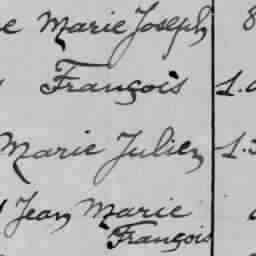 e Marie Joseph 8
François 1.
Marie Julien 1.3
Jean Marie
François